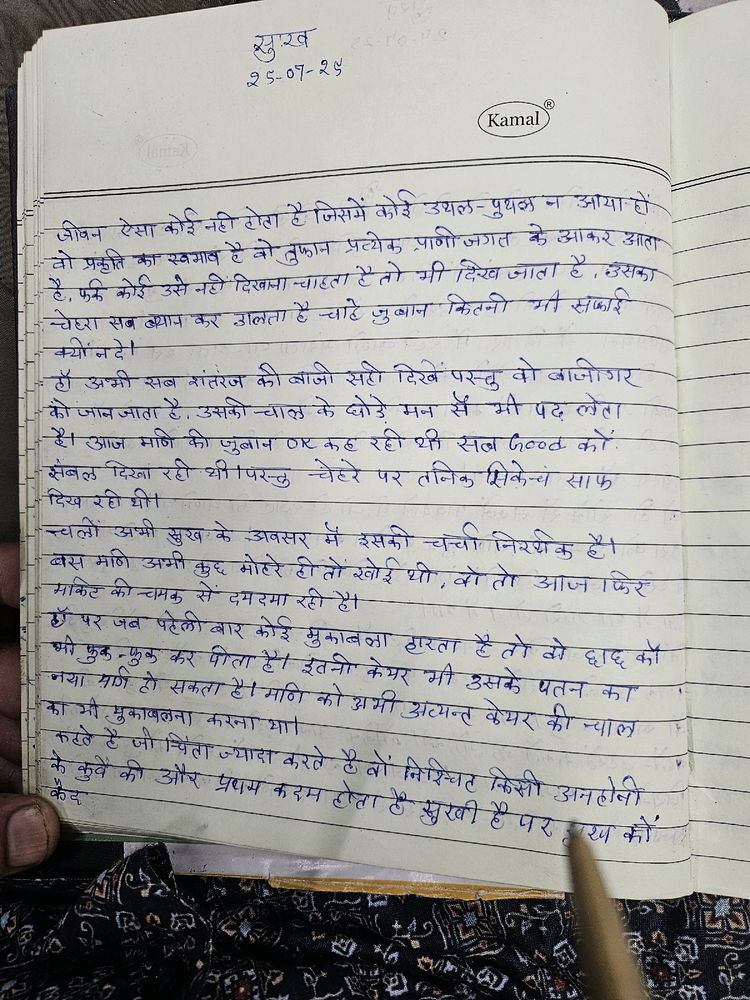 सुःख
२5-07-२5
Kamal®
जीवन ऐसा कोई नही होता है जिसमें कोई उथल-पुथल न आया हों
वो प्रकृति का स्वभाव है वो तुफान प्रत्येक प्राणी जगत के आकर आता
है, फर्क कोई उसे नही दिखाना चाहता है तो भी दिख जाता है, उसका
चेहरा सब ब्यान कर डालता है चाहे जुबान कितनी भी सफाई
क्यों न दे।
हाँ अभी सब शंतरज की बाजी सही दिखें परन्तु वो बाजीगर
को जान जाता है, उसकी चाल के घोड़े मन सें भी पढ लेता
है। आज मणि की जुबान OK कह रही थी सब Good कों
सिंबल दिखा रही थी। परन्तु चेहरे पर तनिक सिकेन्च साफ
दिख रही थी।
चलों अभी सुख के अवसर में इसकी चर्चा निरर्थक है।
बस मणि अभी कुछ मोहरे ही तो खोई थी, वो तो आज फिर
मार्किट की चमक सें दमदमा रही है।
हाँ पर जब पहेली बार कोई मुकाबला हारता है तो वो छाछ कों
भी फुक-फुक कर पीता है। इतनी केयर भी उसके पतन का
नया मार्ग हो सकता है। मणि को अभी अत्यन्त केयर की चाल
का भी मुकाबलना करना था।
कहते है जो चिंता ज्यादा करते है वों निश्चित किसी अनहोनी
के कुवै की और प्रथम कदम होता है सुखी है पर सुख कों
कैद